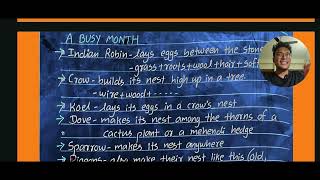 A BUSY MONTH
→ Indian Robin - lays eggs between the stone
- grass + roots + wool + hair + sof
→ Crow - builds its nest high up in a tree.
- wire + wood + - - - - -
→ Koel - lays its eggs in a crow's nest
→ Dove - makes its nest among the thorns of a
cactus plant or a mehendi hedge
→ Sparrow - makes its nest anywhere
→ Pigeons - also make their nest like this (old,